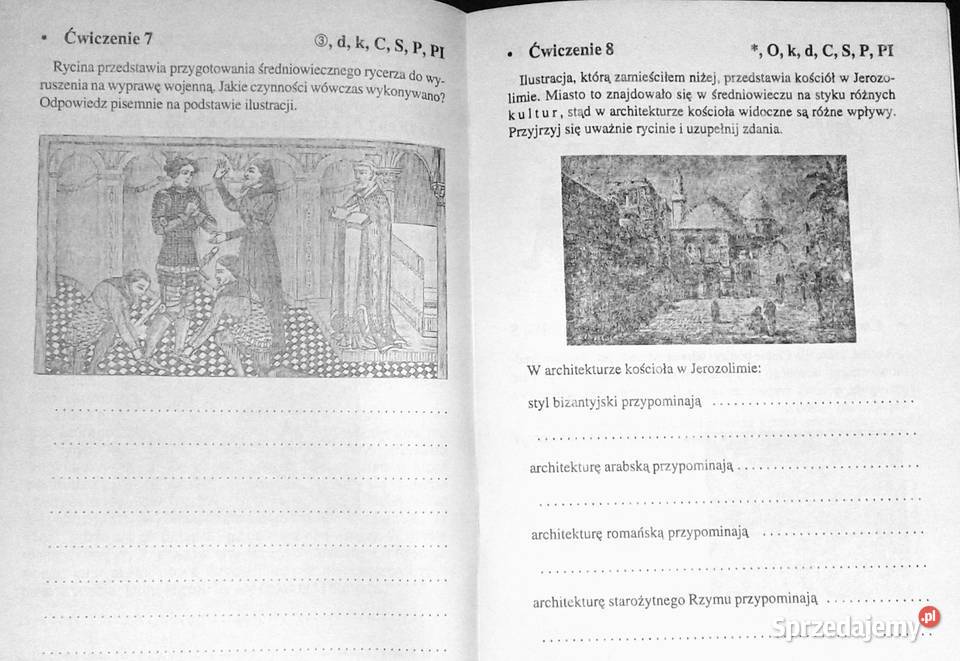 • Ćwiczenie 7
③, d, k, C, S, P, PI
Rycina przedstawia przygotowania średniowiecznego rycerza do wy-
ruszenia na wyprawę wojenną. Jakie czynności wówczas wykonywano?
Odpowiedz pisemnie na podstawie ilustracji.
• Ćwiczenie 8
*, O, k, d, C, S, P, PI
Ilustracja, którą zamieściłem niżej, przedstawia kościół w Jerozo-
limie. Miasto to znajdowało się w średniowieczu na styku różnych
kultur, stąd w architekturze kościoła widoczne są różne wpływy.
Przyjrzyj się uważnie rycinie i uzupełnij zdania.
W architekturze kościoła w Jerozolimie:
styl bizantyjski przypominają
architekturę arabską przypominają
architekturę romańską przypominają
architekturę starożytnego Rzymu przypominają
Sprzedajemy.pl